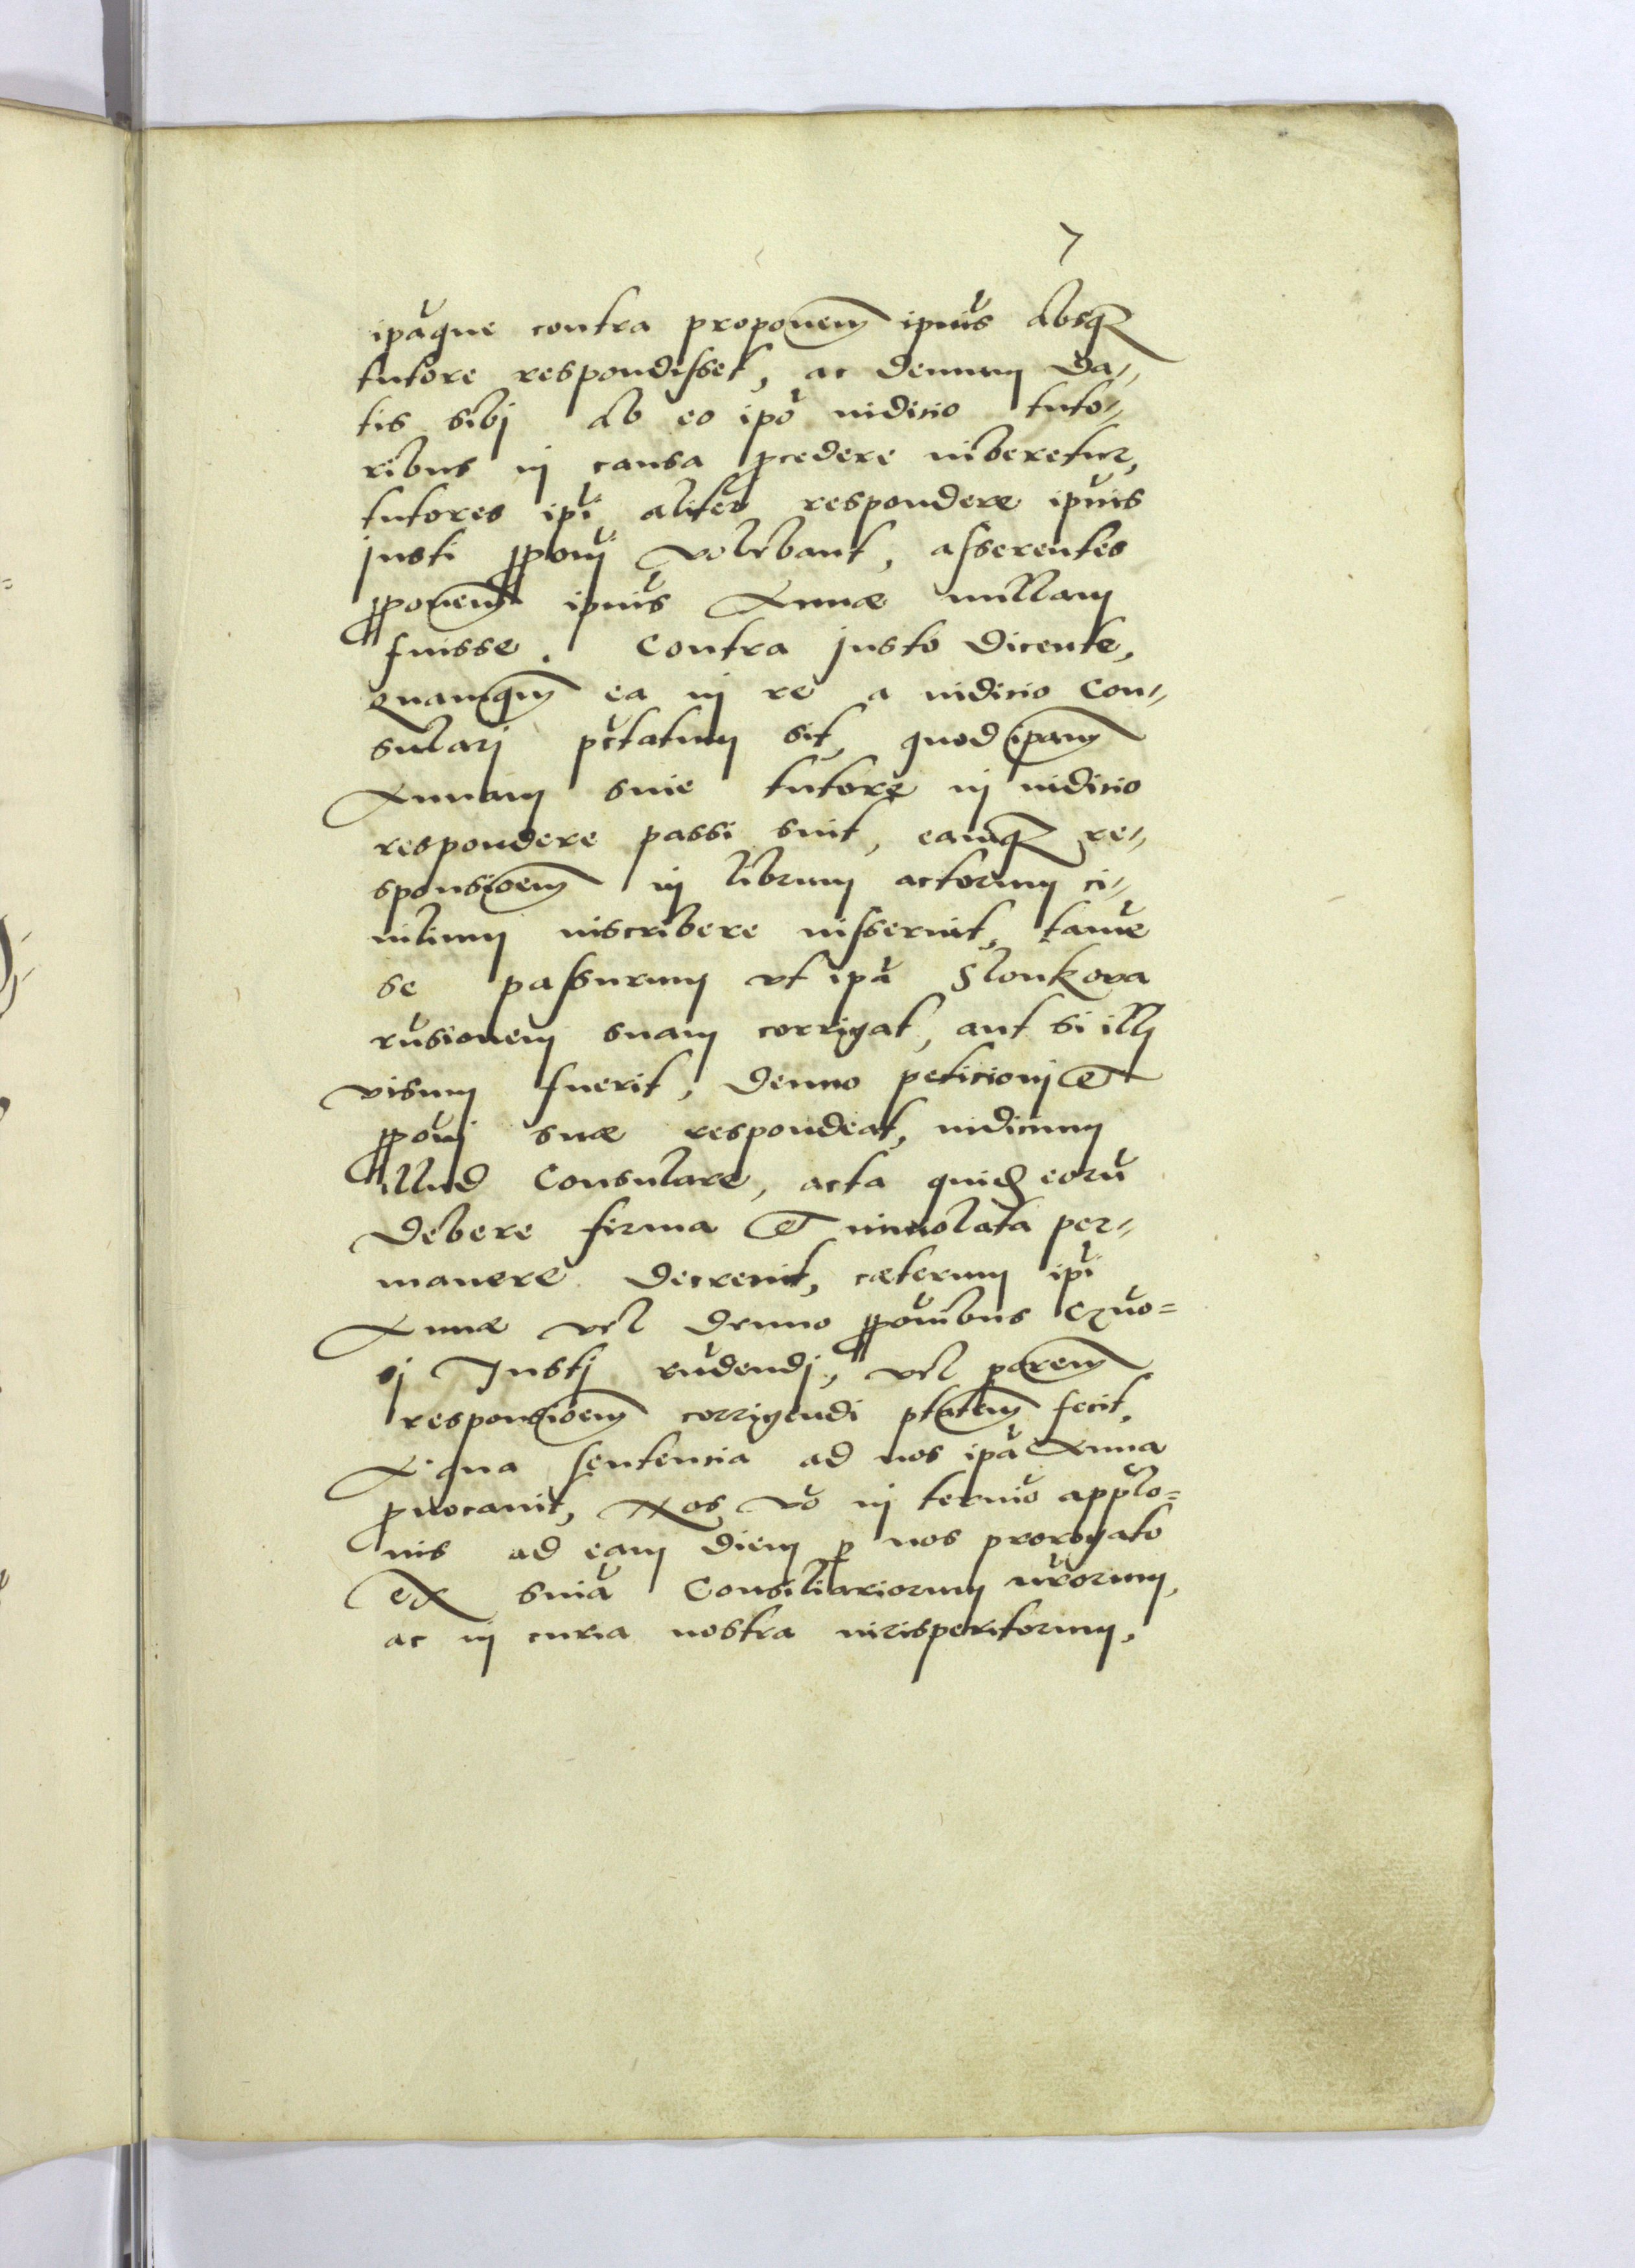 7
ipãque contra proponem ipius absq
tutore respondisset, ac demum da„
tis sibj ab eo ipo iudicio tuto„
ribus in causa pcedere iuberetur,
tutores ipi aliter respondere ipius
justi pponj volebant, asserentes
pponem ipius Annæ nullam
fuisse. Contra justo dicente,
quamqm ea in re a iudicio Con„
sularj pctatum sit, quod ipam
Annam sine tutore in iudicio
respondere passi sint, eamq re„
sponsioem in librum actorum ci„
uilium inscribere iusserint, tame
se passurum vt ipa Slonkova
rusionem suam corrigat, aut si illj
visum fuerit, denuo peticionj et
pponj suæ respondeat, iudicium
illud Consulare, acta quid eorũ
debere firma et inuiolata per„
manere decreuit, cæterum ipi
Annæ vel denuo pponibus
sj Justj rũdendj, vel porem
responsioem corrigendi ptatem fecit,
A qua sententia ad nos ipã Anna
puocauit, Nos vo in termio applo=
nis ad eam diem p nos prorogato
ex snia Consiliariorum nrorum,
ac in curia nostra iurisperitorum,